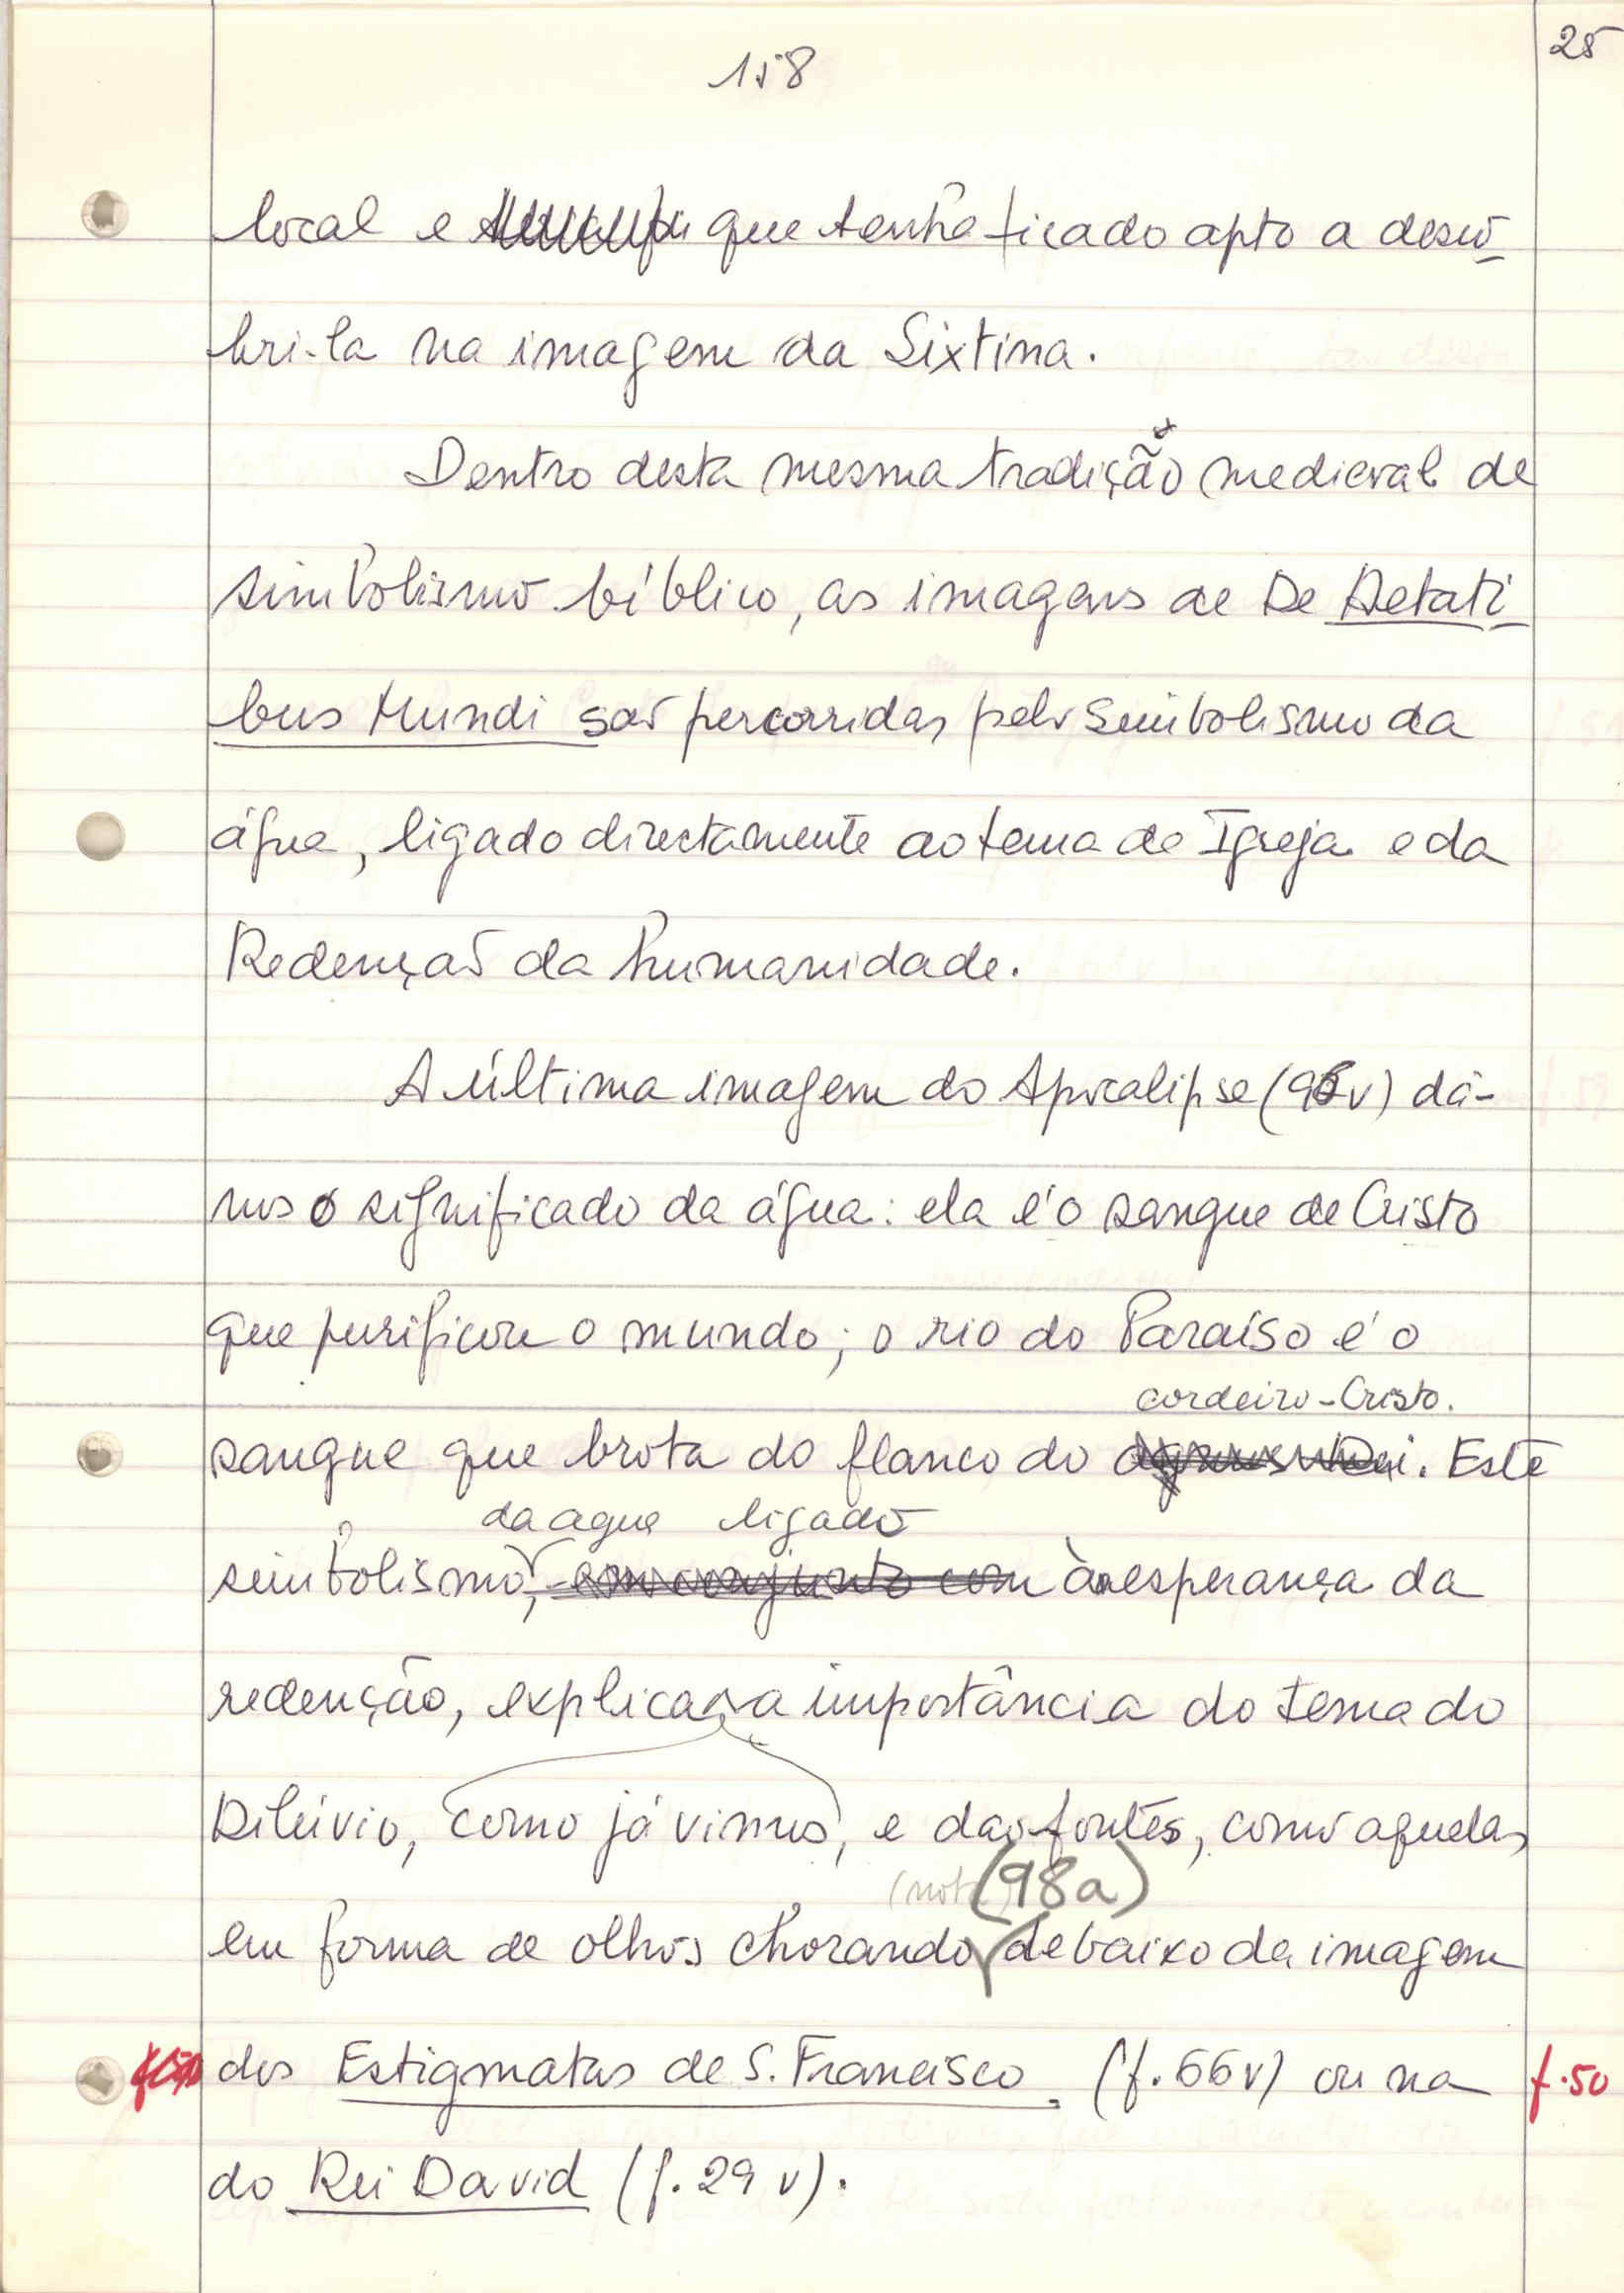 158
25
local e que tenha ficado apto a desco-
bri-la na imagem da Sixtina.
Dentro desta mesma tradição medieval de
simbolismo bíblico, as imagens de De Aetati-
bus Mundi são percorridas pelo simbolismo da
água, ligado directamente ao tema da Igreja e da
Redenção da humanidade.
A última imagem do Apocalipse (96v) dá-
nos o significado da água: ela é o sangue de Cristo
que purificou o mundo; o rio do Paraíso é o
cordeiro-Cristo.
sangue que brota do flanco do agnus Dei. Este
da agua ligado
simbolismo, em conjunto com à esperança da
redenção, explica a importância do tema do
Dilúvio, como já vimos, e das fontes, como aquelas
(nota (98a)
em forma de olhos chorando debaixo da imagem
f.50 dos Estigmatas de S. Francisco. (f.66v) ou na f.50
do Rei David (f.29v).